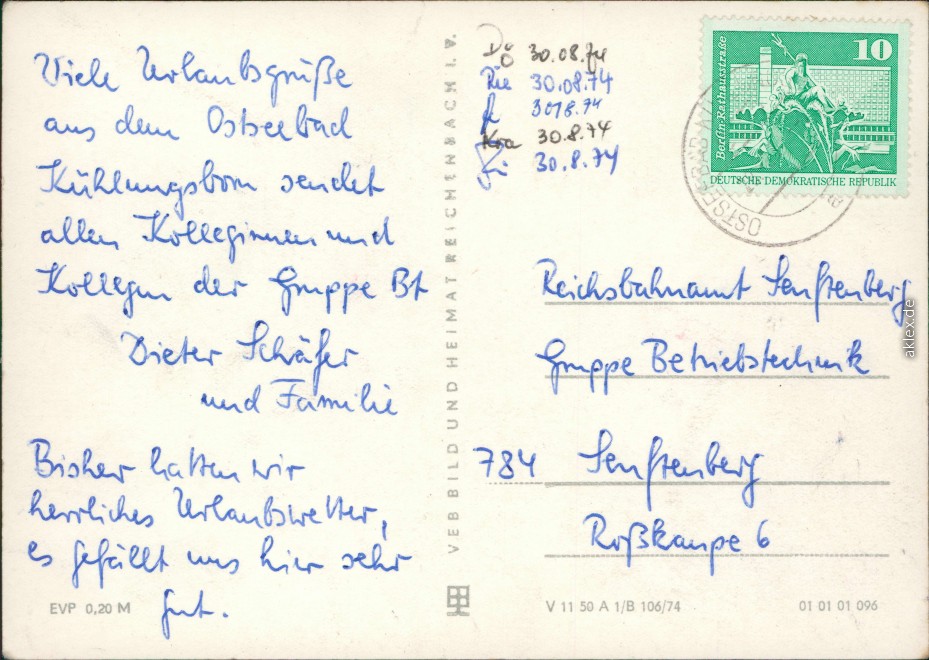 Viele Urlaubsgrüße
aus dem Ostseebad
Kühlungsborn sendet
allen Kolleginnen und
Kollegen der Gruppe Bt
Dieter Schäfer
und Familie
Bisher hatten wir
herrliches Urlaubswetter,
es gefällt uns hier sehr
gut.
EVP 0,20 M
VEB BILD UND HEIMAT REICHENBACH I. V.
30.08.74
30.08.74
30.8.74
Kra 30.8.74
30.8.74
10
Berlin-Rathausstraße
DEUTSCHE DEMOKRATISCHE REPUBLIK
OSTSEEBAD
Reichsbahnamt Senftenberg
Gruppe Betriebstechnik
784 Senftenberg
Roßkaupe 6
V 11 50 A 1/B 106/74
01 01 01 096
aklex.de